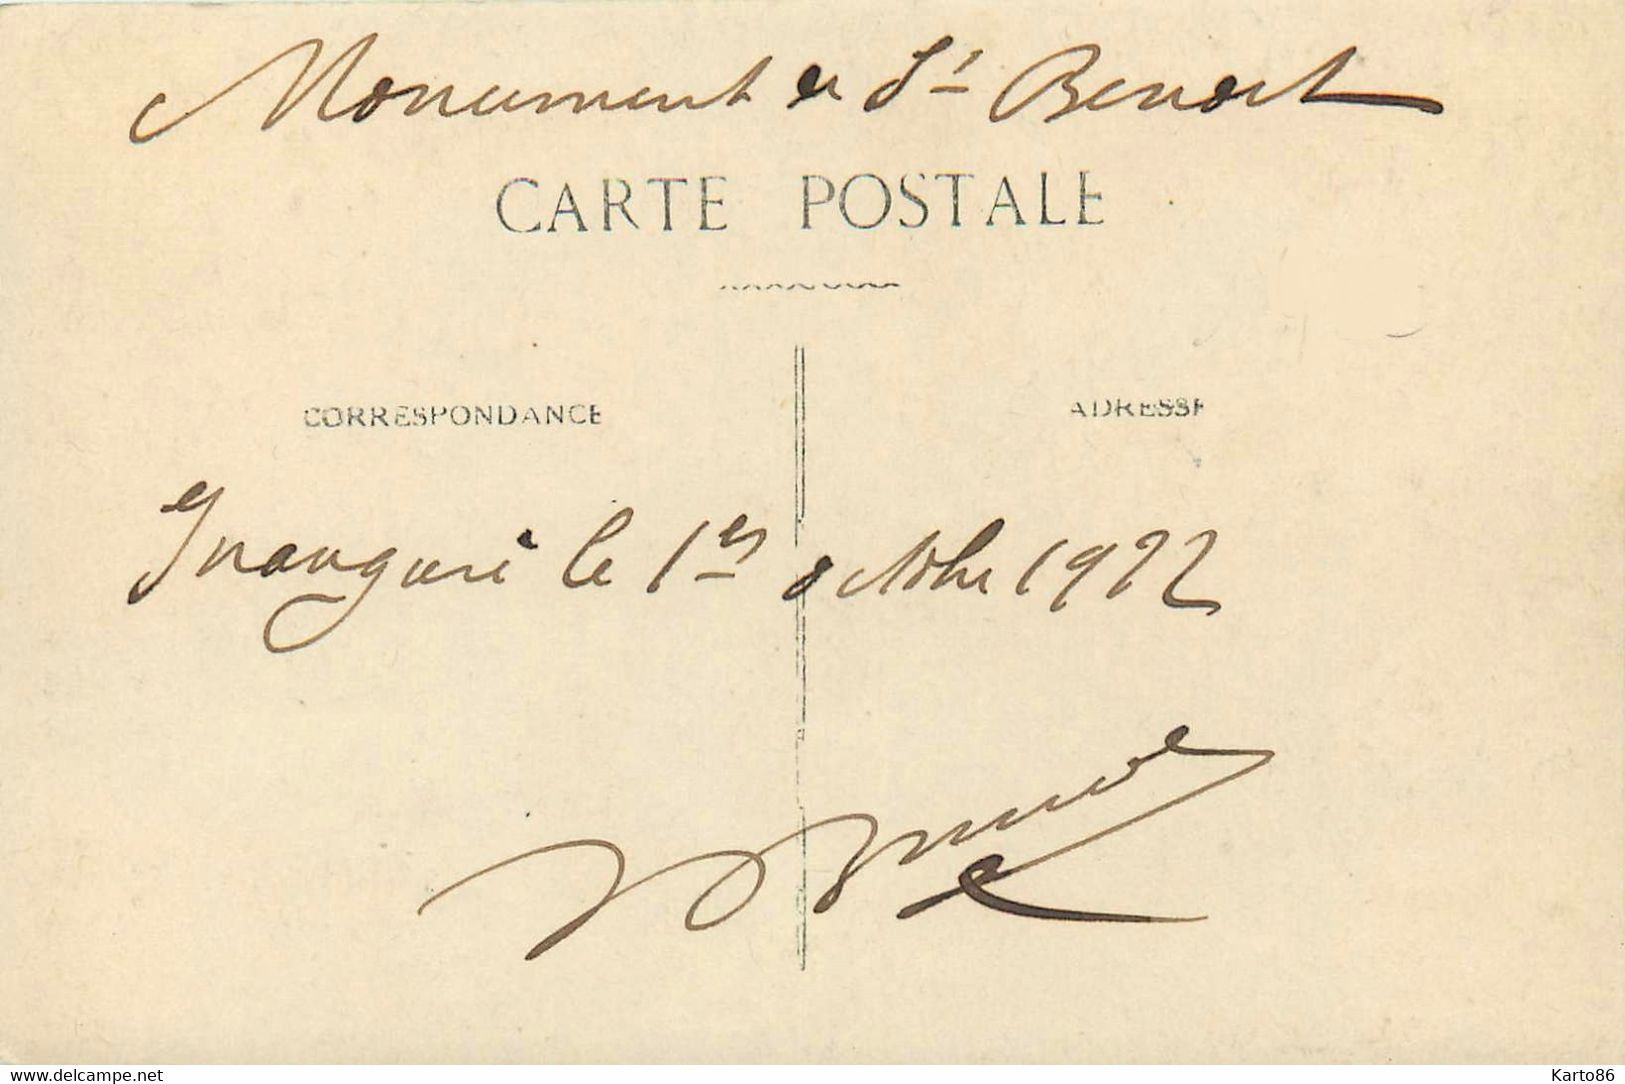 Monument de St Benoit
CARTE POSTALE
CORRESPONDANCE
ADRESSE
Inauguré le 1er octobre 1922
www.delcampe.net
Karto86